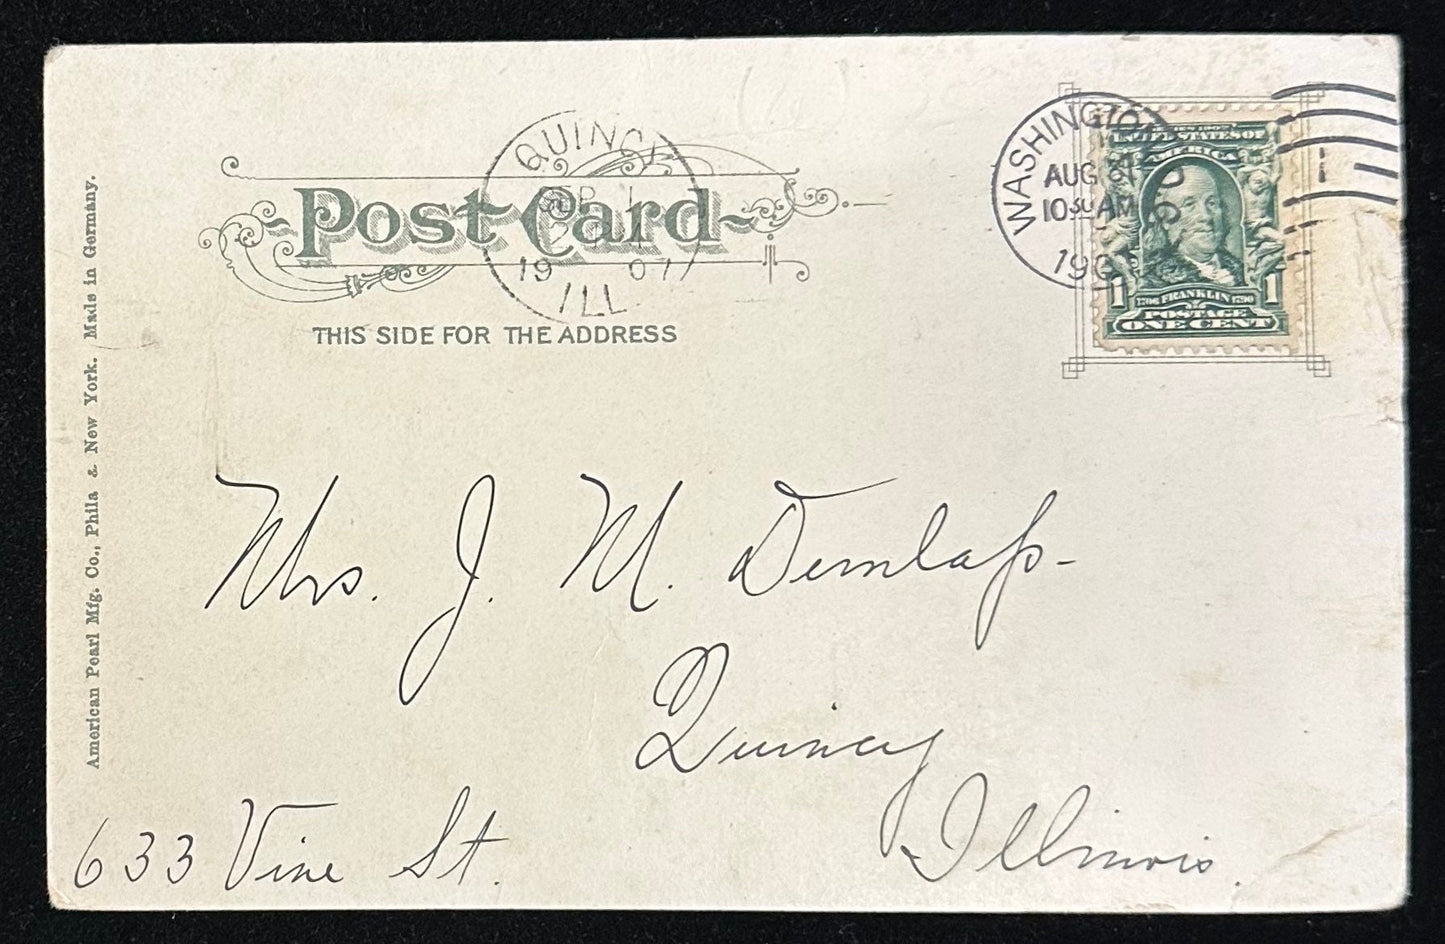 QUINCY
SEP 1
1907
ILL
WASHINGTON D.C.
AUG 31
10 30 AM
190
SERIES 1902
UNITED STATES OF
AMERICA
1 1706 FRANKLIN 1790 1
POSTAGE
ONE CENT
1
Post Card
THIS SIDE FOR THE ADDRESS
American Pearl Mfg. Co., Phila & New York. Made in Germany.
Mrs. J. M. Dunlap-
Quincy
Illinois.
633 Vine St.